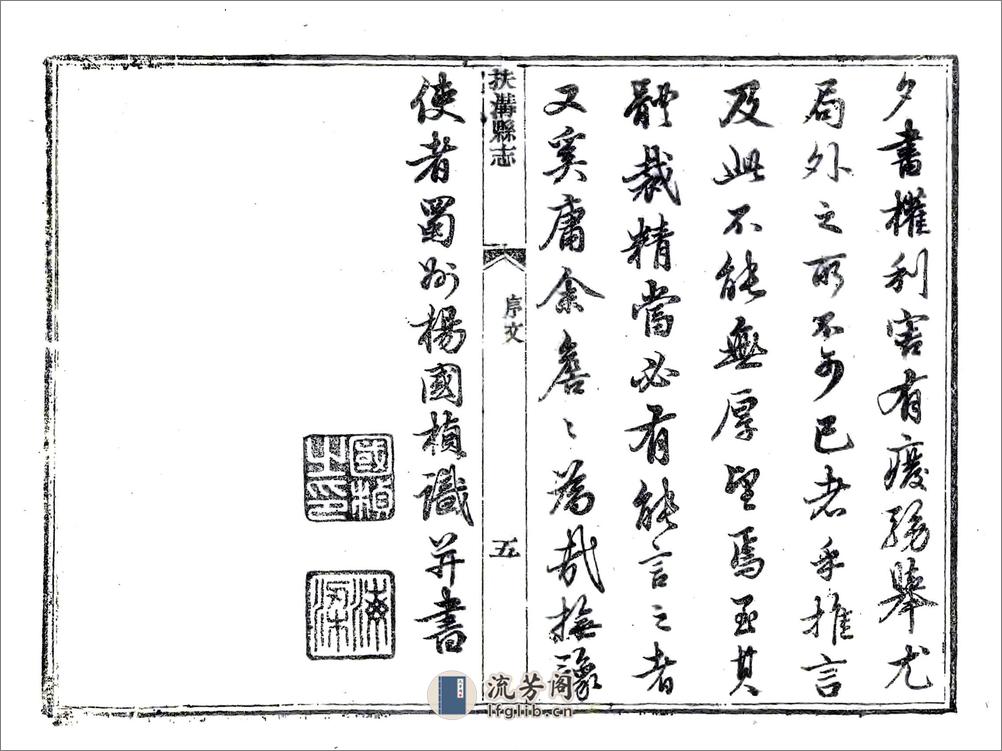 夕書權利害有廢務舉尤
局外之所不可已者乎推言
及此不能無厚望焉至其
體裁精當必有能言之者
又奚庸余詹〻為哉撫豫
扶溝縣志
序文
五
使者蜀州楊國楨識并書
國楨之印
海梁
流芳阁
lfglib.cn